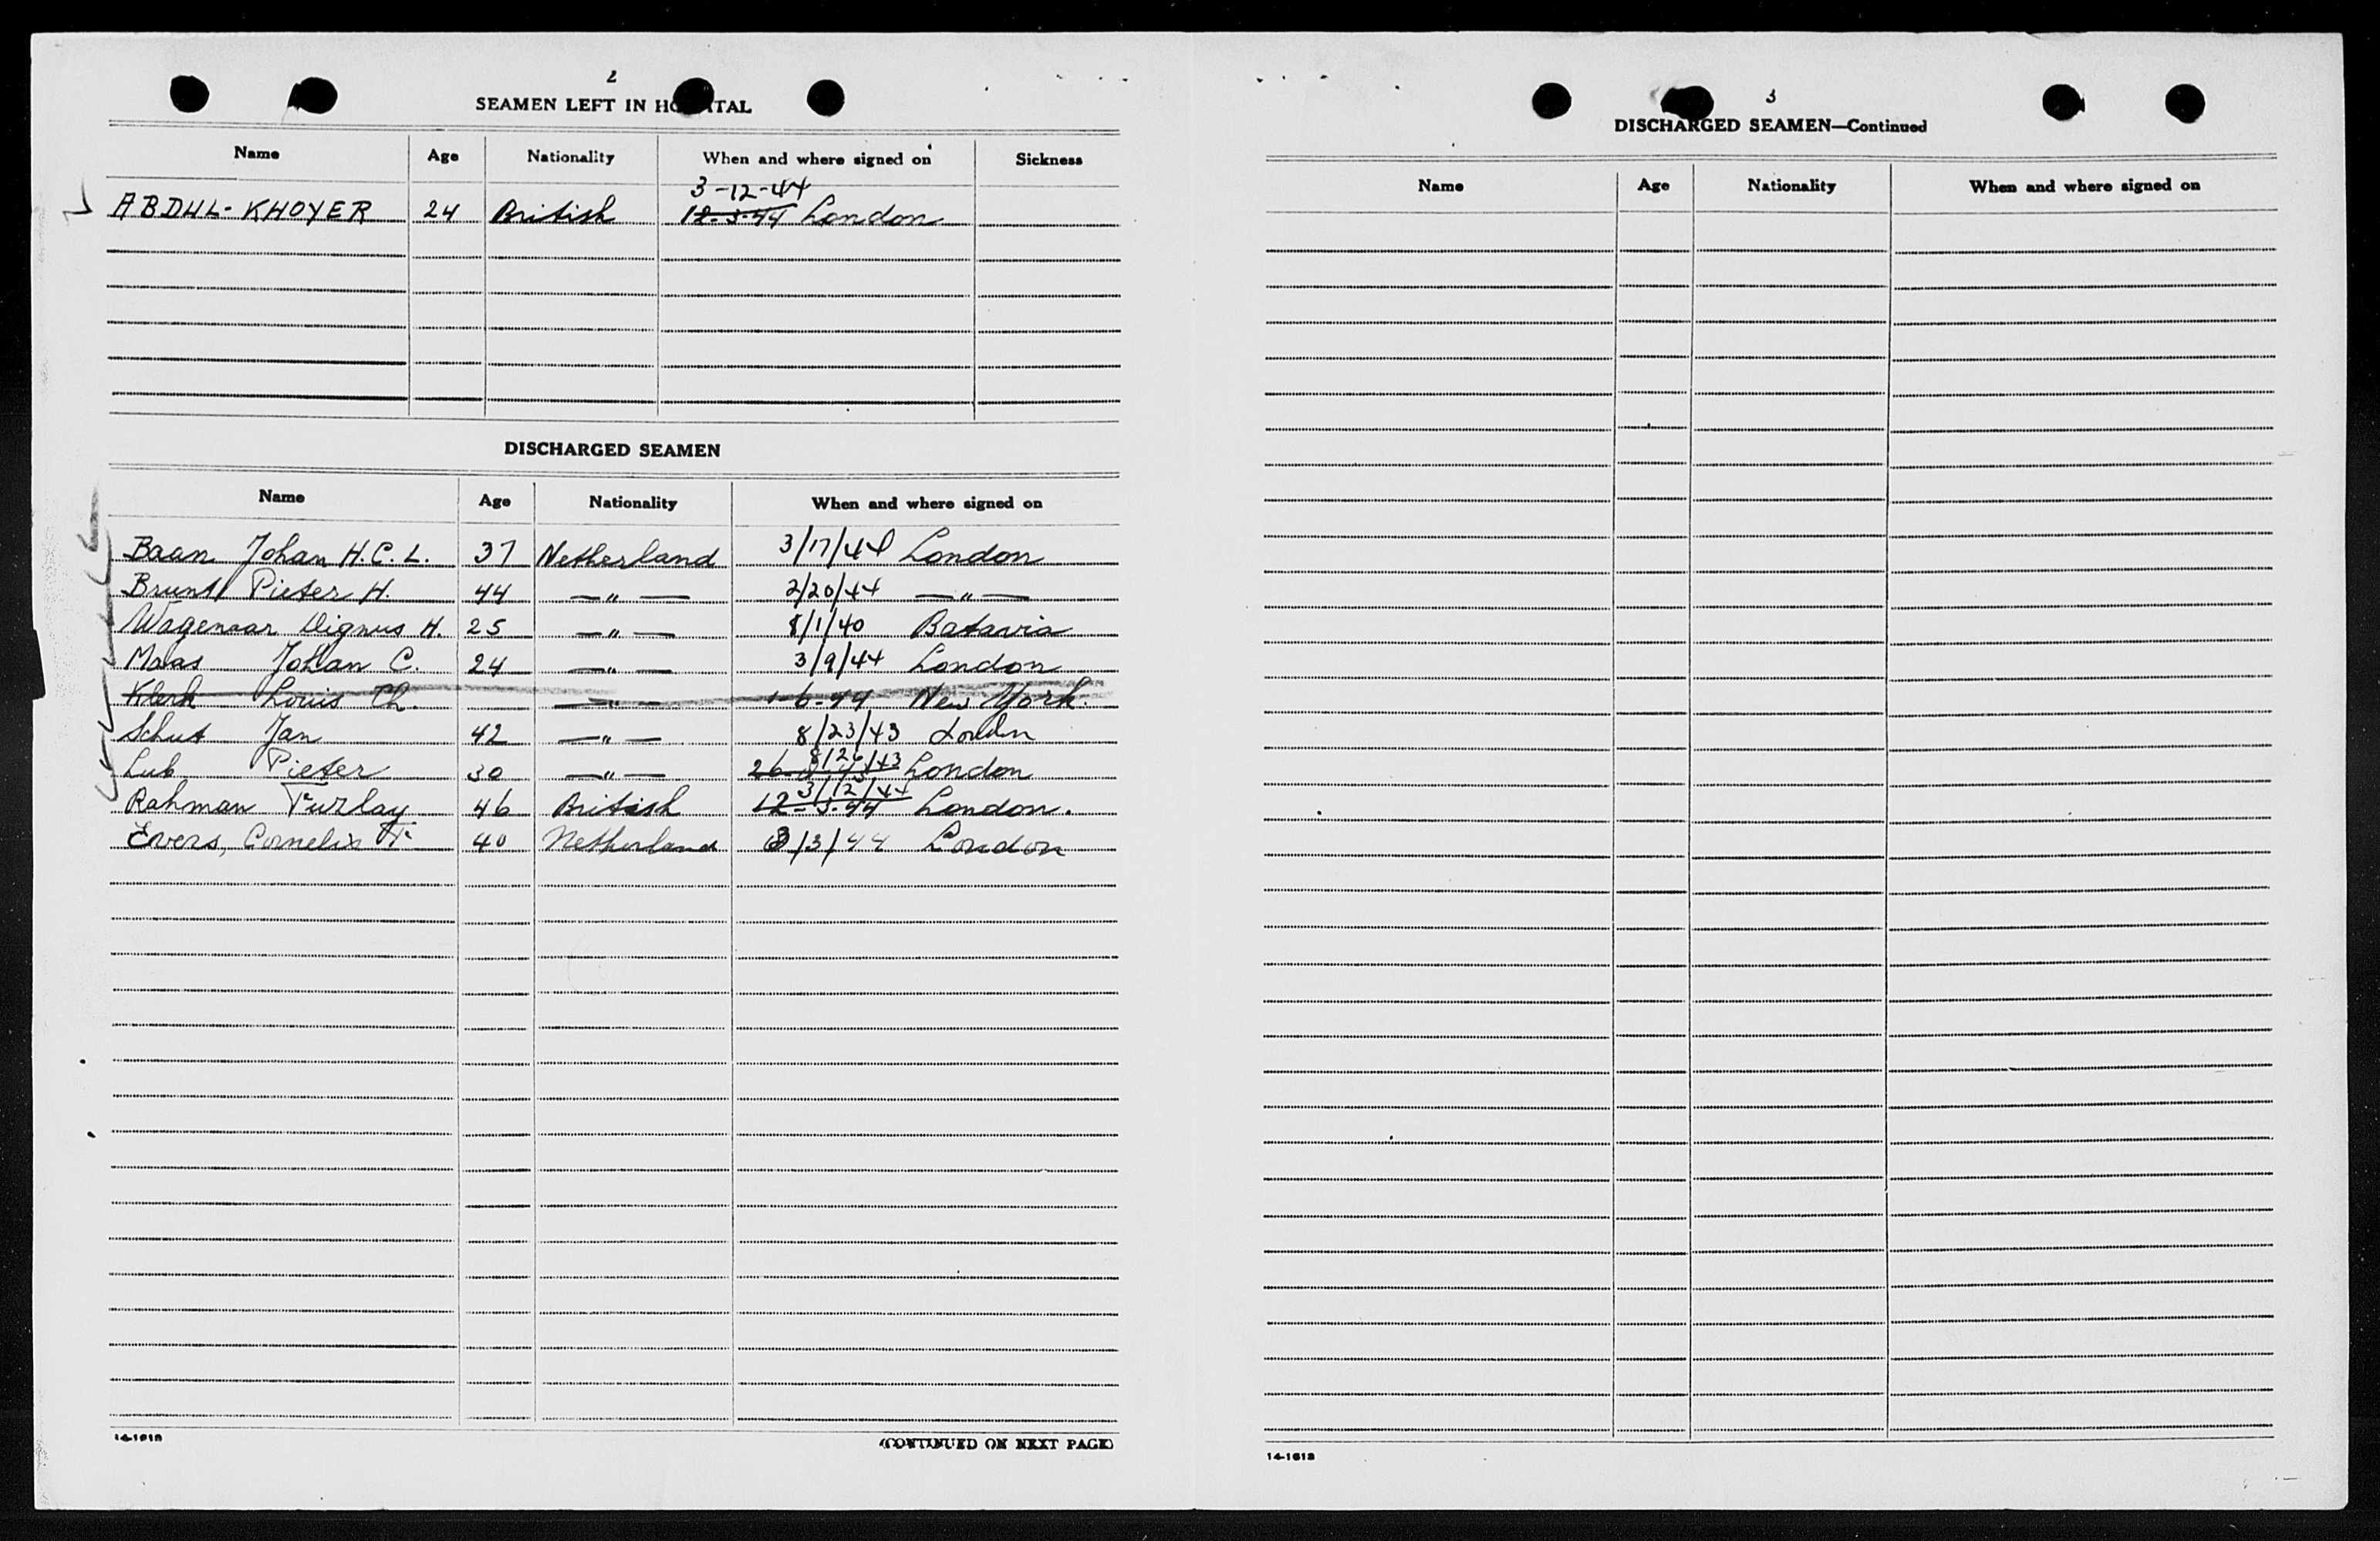 2
SEAMEN LEFT IN HOSPITAL
Name Age Nationality When and where signed on Sickness
3-12-44
ABDUL-KHOYER 24 British 12-3-44 London
DISCHARGED SEAMEN
Name Age Nationality When and where signed on
Baan Johan H.C.L. 37 Netherland 3/17/44 London
Brunt Pieter H. 44 —"— 2/20/44 —"—
Wagenaar Dignus H. 25 —"— 8/1/40 Batavia
Maas Johan C. 24 —"— 3/9/44 London
Klerk Louis Th. —"— 1-6-44 New York.
Schut Jan 42 —"— 8/23/43 London
8/26/43
Lub Pieter 30 —"— 26 London
3/12/44
Rahman Furlay 46 British 12-3-44 London.
Evers, Cornelis 40 Netherland 3/3/44 London
14-1618
(CONTINUED ON NEXT PAGE)
3
DISCHARGED SEAMEN—Continued
Name Age Nationality When and where signed on
14-1618